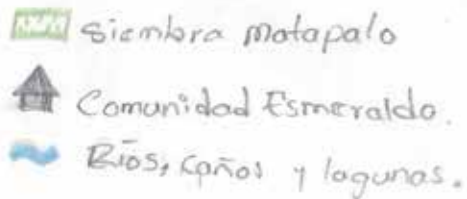 siembra matapalo
Comunidad Esmeralda.
Ríos, caños y lagunas.